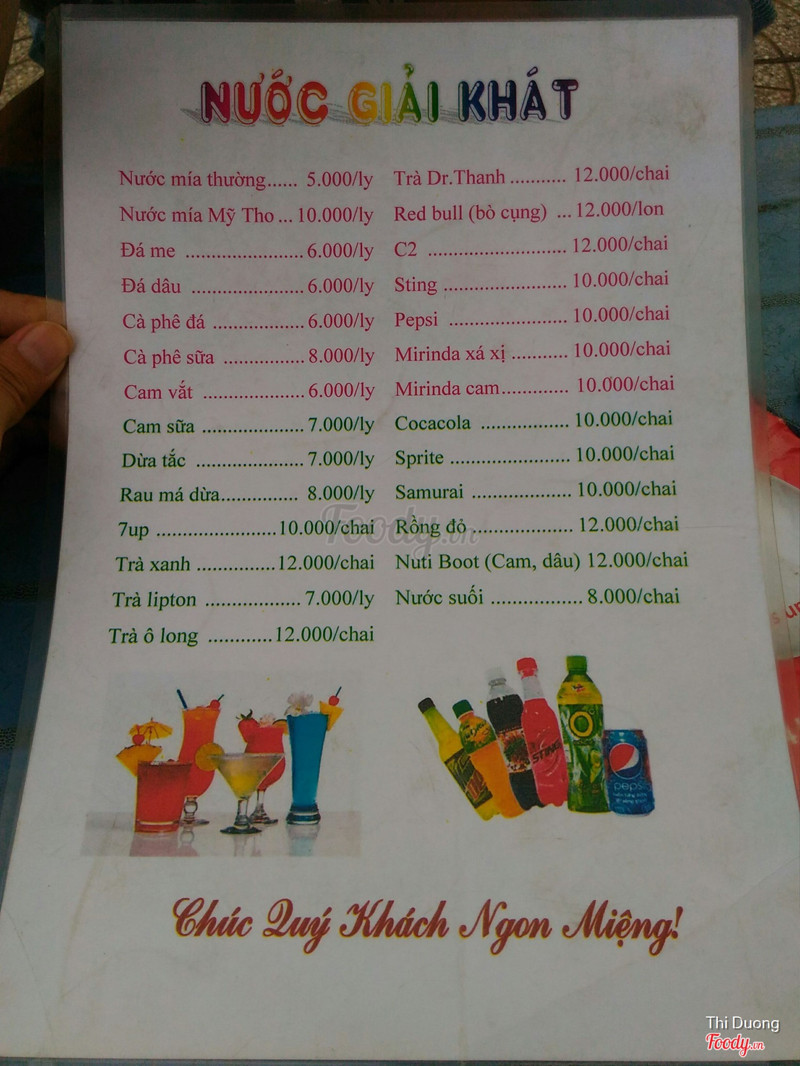 NƯỚC GIẢI KHÁT
Nước mía thường...... 5.000/ly
Nước mía Mỹ Tho ... 10.000/ly
Đá me .................... 6.000/ly
Đá dâu ................... 6.000/ly
Cà phê đá ................ 6.000/ly
Cà phê sữa .............. 8.000/ly
Cam vắt .................. 6.000/ly
Cam sữa .................. 7.000/ly
Dừa tắc ................... 7.000/ly
Rau má dừa.............. 8.000/ly
7up ......................10.000/chai
Trà xanh ..............12.000/chai
Trà lipton .................7.000/ly
Trà ô long ............12.000/chai
Trà Dr.Thanh ........... 12.000/chai
Red bull (bò cụng) ... 12.000/lon
C2 ......................... 12.000/chai
Sting ...................... 10.000/chai
Pepsi ..................... 10.000/chai
Mirinda xá xị .......... 10.000/chai
Mirinda cam............ 10.000/chai
Cocacola ................ 10.000/chai
Sprite ..................... 10.000/chai
Samurai ................. 10.000/chai
Rồng đỏ ................... 12.000/chai
Nuti Boot (Cam, dâu) 12.000/chai
Nước suối ................. 8.000/chai
Foody.vn
STING
pepsi
Chúc Quý Khách Ngon Miệng!
Thi Duong
Foody.vn